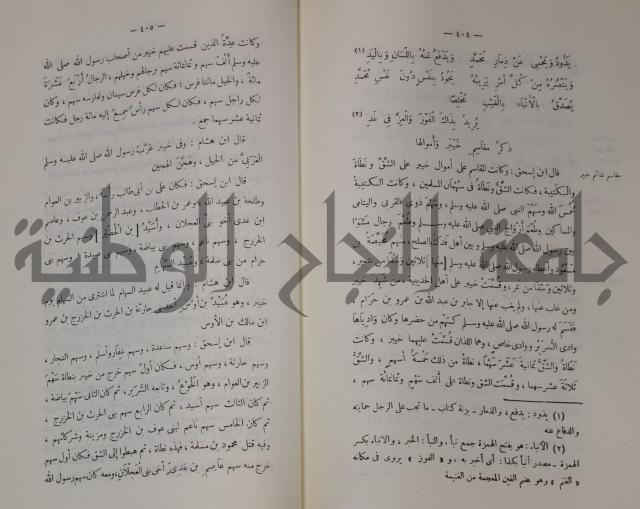 — ٤٠٤ —
يَذُودُ وَيَحْمِى عَنْ ذِمَارِ مُحَمَّدٍ وَيَدْفَعُ عَنْهُ بِاللِّسَانِ وَبِالْيَدِ (١)
وَيَنْصُرُهُ مِنْ كُلِّ أَمْرٍ يَرِيبُهُ يَجُودُ بِنَفْسٍ دُونَ نَفْسِ مُحَمَّدِ
يُصَدِّقُ بِالْأَنْبَاءِ بِالْغَيْبِ مُخْلِصًا
يُرِيدُ بِذَاكَ الْفَوْزَ وَالْعِزَّ فِى غَدِ (٢)
ذكر مقاسم خَيْبَرَ وأموالها
مقاسم غنائم خيبر
قال ابن إسحق: وكانت المقاسم على أموال خيبر على الشِّقِّ وَنَطَاةَ
والكَتيبة، فكانت الشِّقُّ ونَطَاةُ فى سُهْمَانِ المسلمين، وكانت الكتيبة
خُمُسَ الله وَسَهْمَ النبى صلى الله عليه وسلم، وَسَهْمَ ذوى القربى واليتامى
والمساكين وَطُعْمَ أزواج النبى صلى الله عليه وسلم وَطُعْمَ رجال مَشَوْا
بين رسول الله صلى الله عليه وسلم وبين أهل فدك بالصلح، منهم مُحَيِّصَةُ بن
مسعود أعطاه رسول الله صلى الله عليه وسلم [منها] ثلاثين وَسْقًا من شعير،
وثلاثين وَسْقًا من تمر، وَقُسِّمَتْ خيبر على أهل الحديبية، مَنْ شهد خيبر
ومن غاب عنها، ولم يغب عنها إلا جابر بن عبد الله بن عمرو بن حَرَام
فقسم له رسول الله صلى الله عليه وسلم كسهم من حضرها وكان وَادِيَاهَا
وادى السُّرَيْرِ ووادى خاص، وهما اللذان قُسِّمَتْ عليهما خيبر، وكانت
نَطَاةُ والشِّقُّ ثمانيةَ عَشَرَ سَهْمًا، نطاةُ من ذلك خمسة أسهم، والشِّقُّ
ثلاثةَ عشر سهما، وقُسِّمَت الشق ونطاة على ألف سَهْمٍ وثمانمائة سهم،
(١) يذود: يدفع، والذمار - بزنة كتاب - ما تجب على الرجل حمايته
والدفاع عنه
(٢) الأنباء: هو بفتح الهمزة جمع نبأ، والنبأ: الخبر، والانباء بكسر
الهمزة - مصدر أنبأ بكذا: أى أخبر به، و« الفوز » يروى فى مكانه
« الغنم » وهو بضم الغين المعجمة من الغنيمة
— ٤٠٥ —
وكانت عِدَّةُ الذين قسمت عليهم خيبر من أصحاب رسول الله صلى الله
عليه وسلم أَلْفَ سهم وثمانمائة سهم برجالهم وخيلهم، الرجالُ أربعَ عَشْرَةَ
مائةً، والخيل مائتا فرس؛ فكان لكل فرس سهمان ولفارسه سهم، وكان
لكل راجل سهم، فكان لكل سهم رأسٌ جمع إليه مائة رجل فكانت
ثمانية عشر سهما جمع.
قال ابن هشام: وفى خيبر عَرَّبَ رسول الله صلى الله عليه وسلم
العَرَبِىَّ من الخيل، وهَجَّنَ الهجين
قال ابن إسحق: فكان على بن أبى طالب رأسا، والزبير بن العوام
وطلحة بن عبيد الله، وعمر بن الخطاب، وعبد الرحمن بن عوف، وعاصم
ابن عدى أخو بنى العجلان، وأُسَيْدُ [بن الْحُضَيْرِ] وسهم الحرث بن
الخزرج، وسهم ناعم، وسهم بنى بياضة، وسهم بنى عبيدة، وسهم بنى
حرام من بنى سلمة وعُبَيْد السهام
قال ابن هشام: وإنما قيل له عبيد السهام لما اشترى من السهام يوم
خيبر، وهو عُبَيْدُ بن أوس أحد بنى حارثة بن الحرث بن الخزرج بن عمرو
ابن مالك بن الأوس
قال ابن إسحق: وسهم ساعدة، وسهم غِفَار وأسلم، وسهم النجار،
وسهم حارثة، وسهم أوس، فكان أولُ سهم خرج من خيبر بنطاة سَهْمَ
الزبير بن العوام، وهو الْخَوْعُ، وتابعه السُّرَيْر، ثم كان الثانى سَهْمَ بياضة،
ثم كان الثالث سهم أسيد، ثم كان الرابع سهم بنى الحرث بن الخزرج،
ثم كان الخامس سهم ناعم لبنى عوف بن الخزرج ومزينة وشركائهم،
وفيه قتل محمود بن مسلمة، فهذه نطاة، ثم هبطوا إلى الشق فكان أول سهم
خرج منه سهم عاصم بن عَدِىٍّ أخى بنى العجلان، ومعه كان سهم رسول الله
جامعة النجاح الوطنية